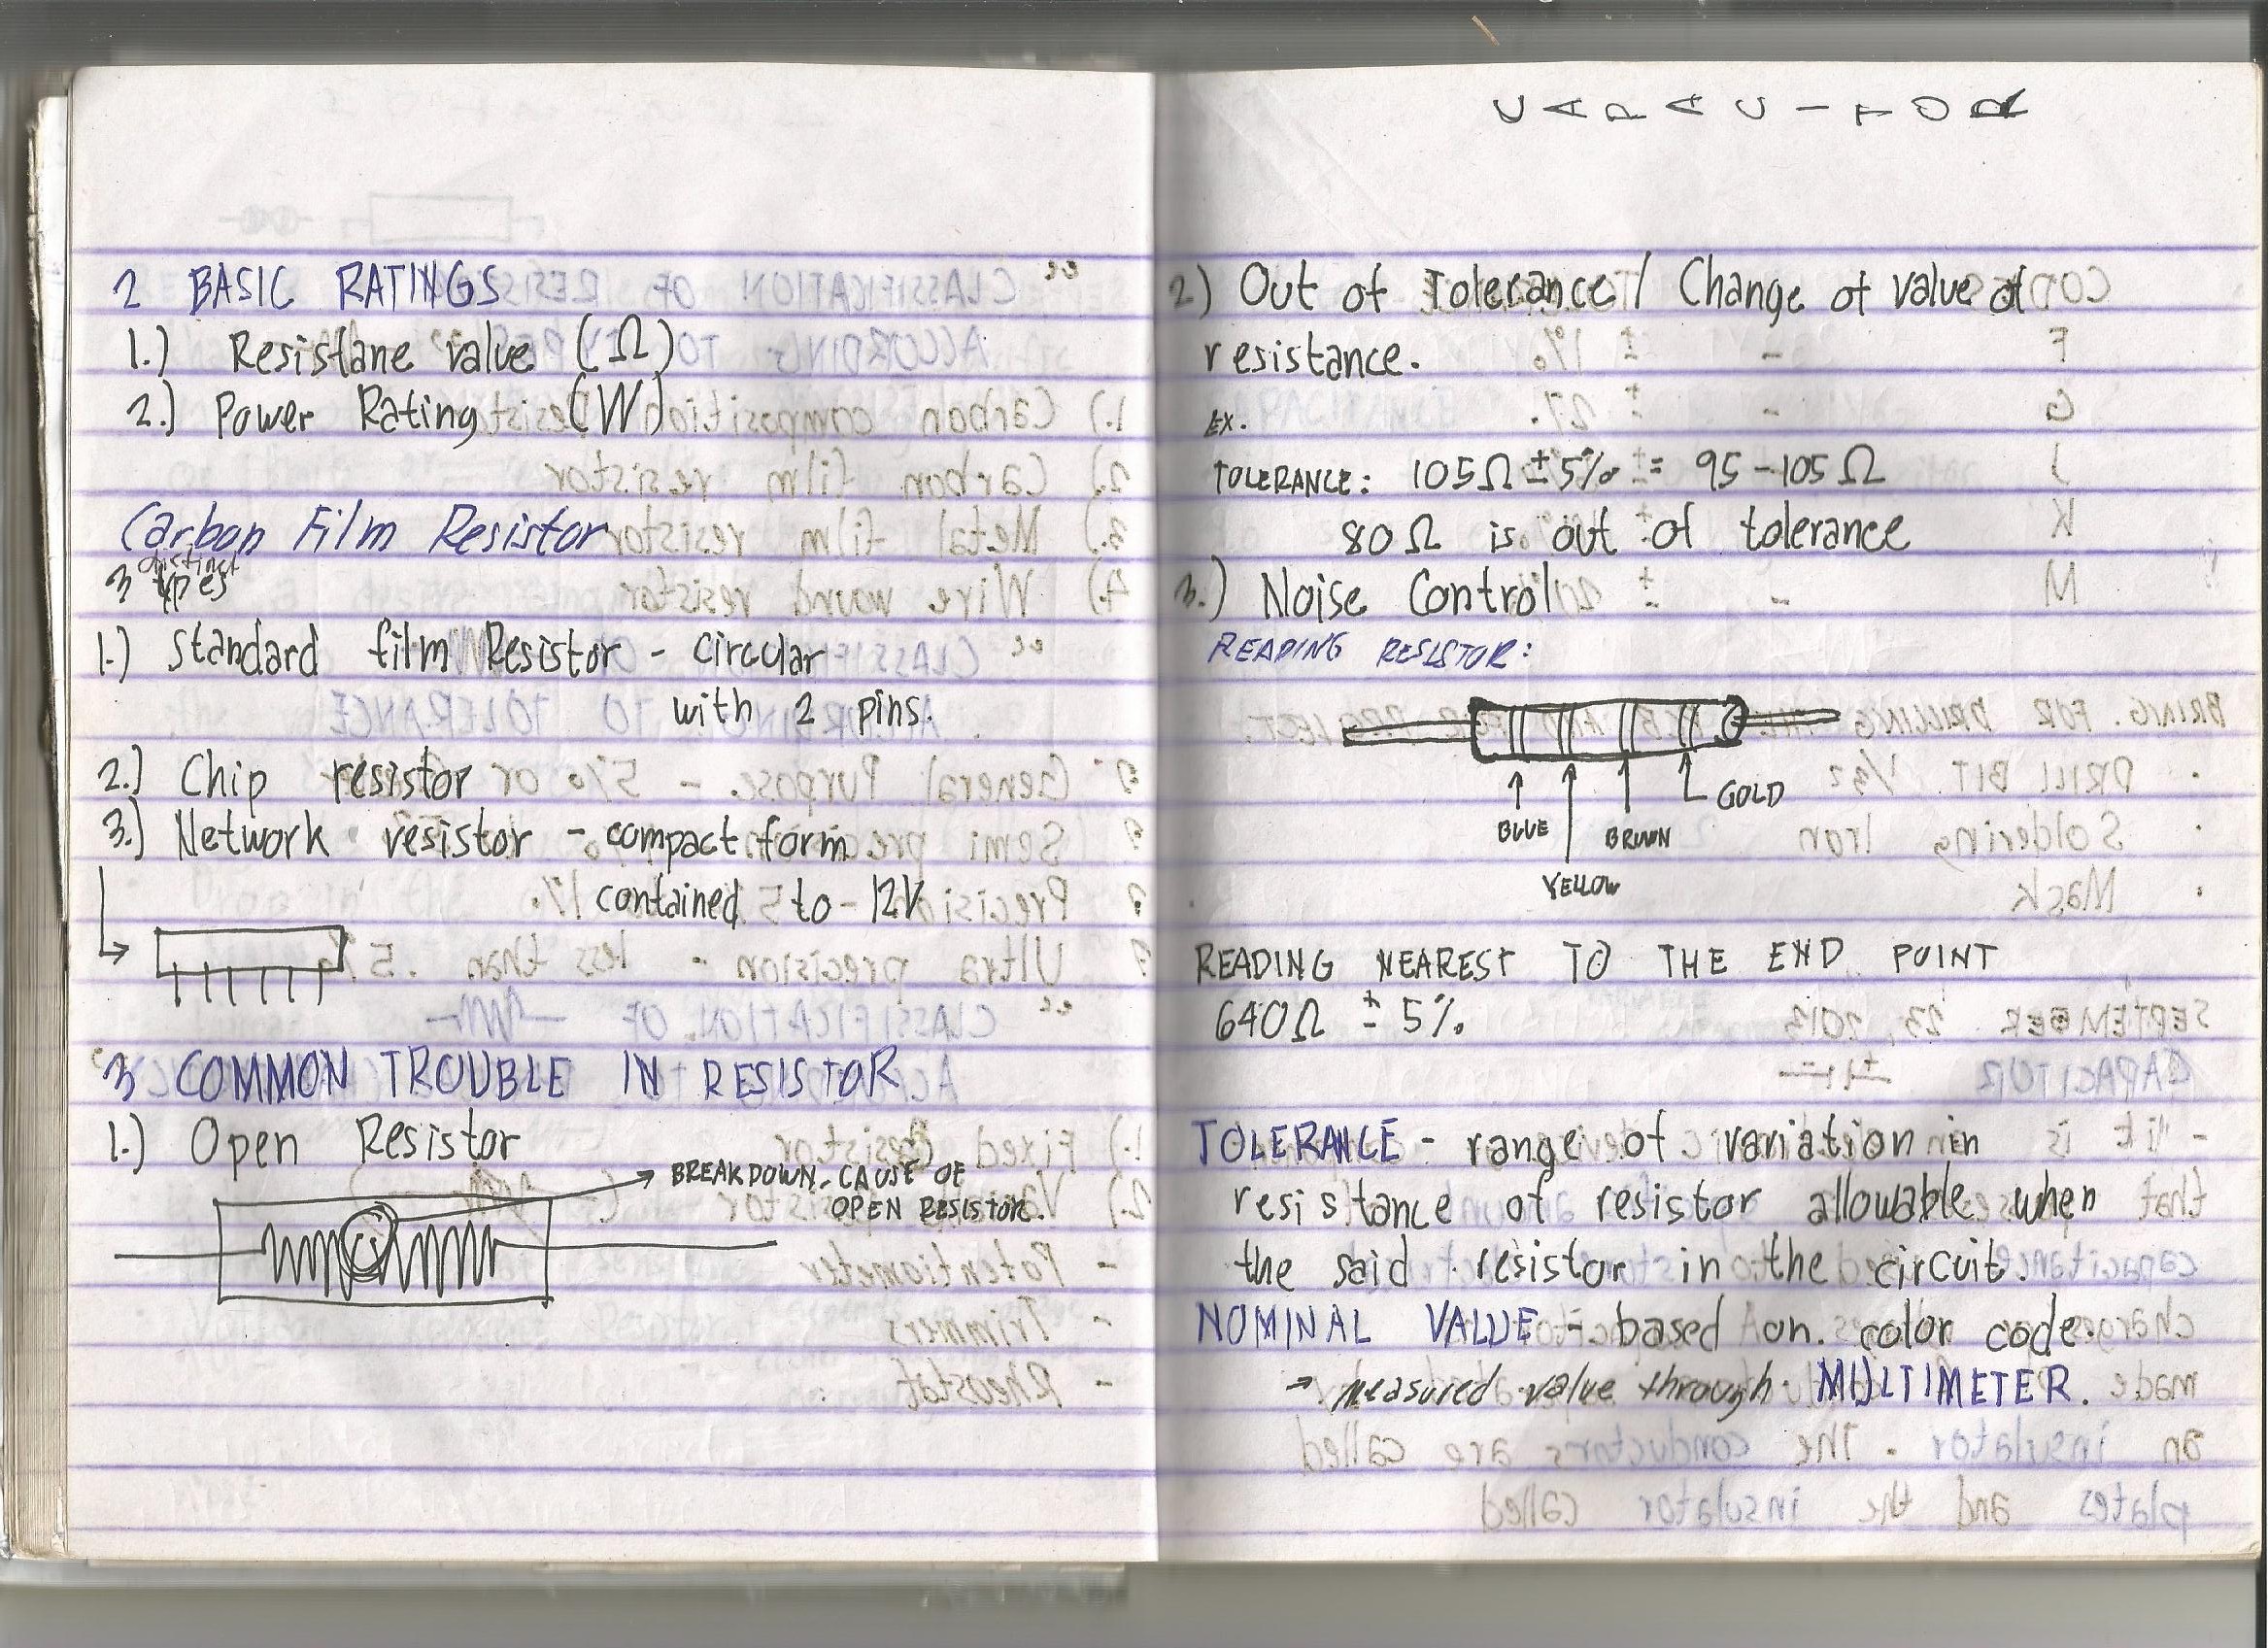 2 BASIC RATINGS
1.) Resistane value (Ω)
2.) Power Rating (W)
Carbon Film Resistor
distinct
3 types
1.) Standard film Resistor - circular
with 2 pins.
2.) Chip resistor
3.) Network resistor - compact form
contained 5 to - 12V
3 COMMON TROUBLE IN RESISTOR
1.) Open Resistor
→ BREAKDOWN - CAUSE OF
OPEN RESISTOR.
CAPACITOR
2) Out of Tolerance / Change of value of
resistance.
EX.
TOLERANCE: 105Ω ± 5% = 95 - 105 Ω
80 Ω is out of tolerance
3.) Noise Control
READING RESISTOR:
GOLD
BLUE BROWN
YELLOW
READING NEAREST TO THE END POINT
640Ω ± 5%.
TOLERANCE - range of variation in
resistance of resistor allowable when
the said resistor in the circuit.
NOMINAL VALUE - based on color code.
→ measured value through MULTIMETER.